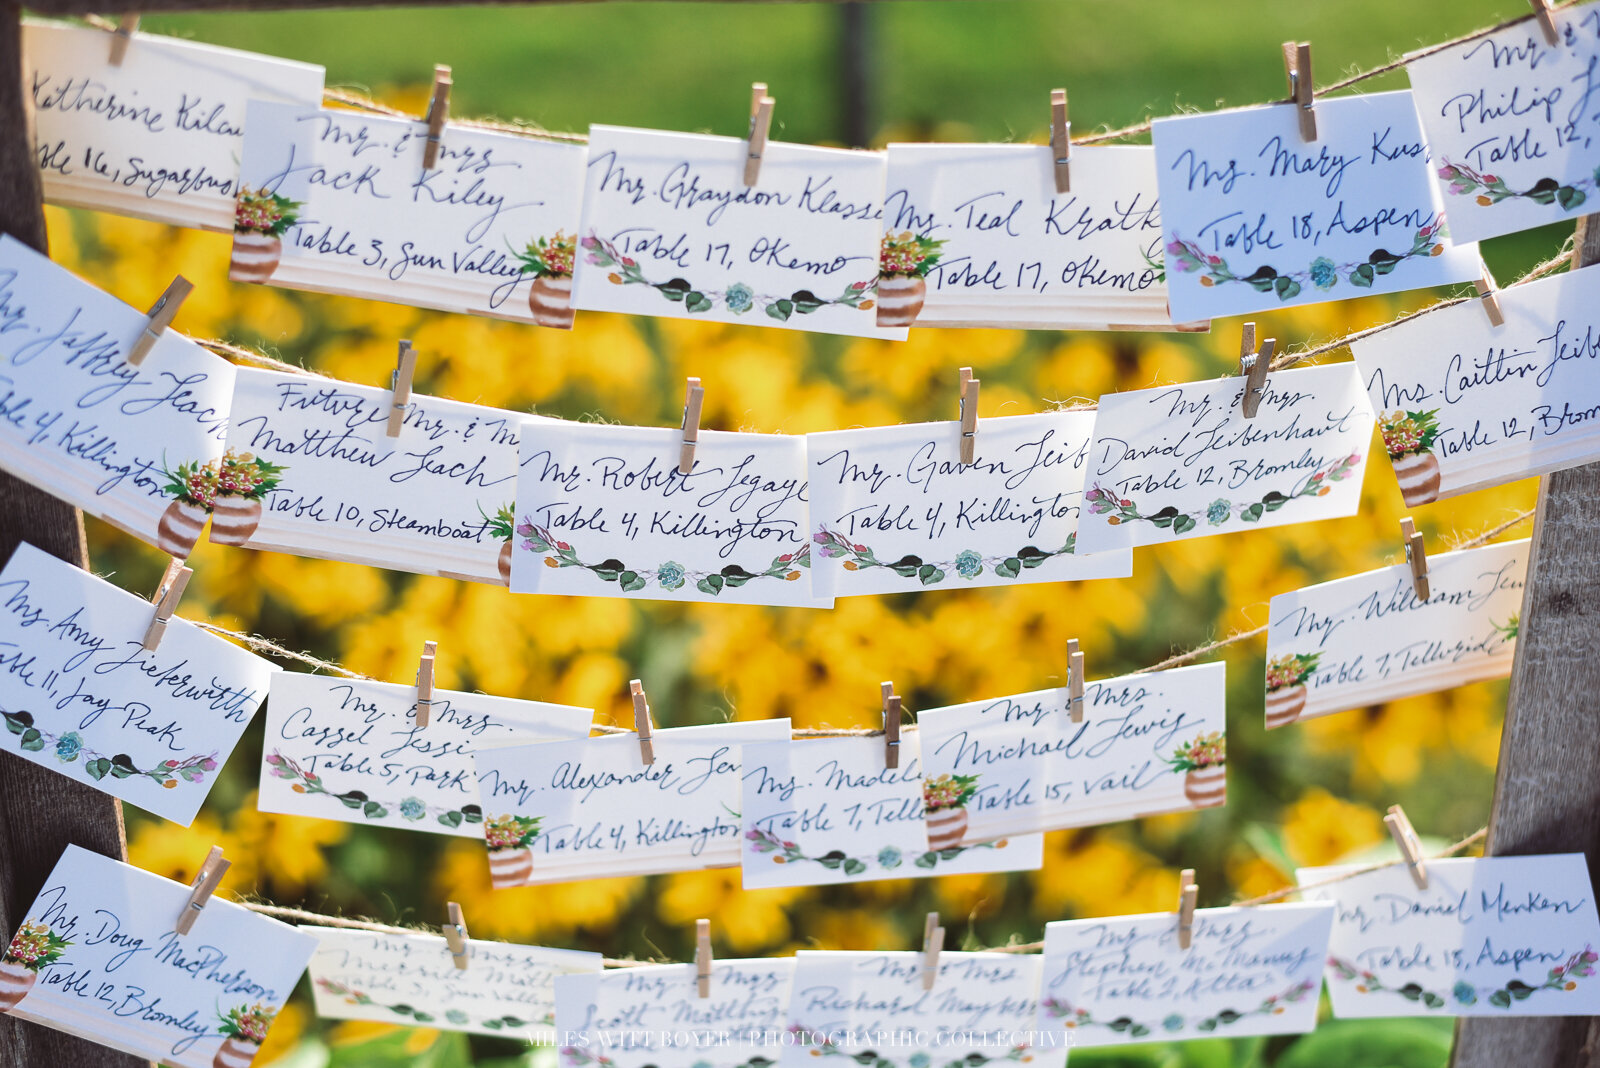 Katherine
16, Sugarbu
Mr. & Mrs.
Jack Kiley
Table 3, Sun Valley
Mr. Graydon Klasse
Table 17, Okemo
Ms. Teal Kratk
Table 17, Okemo
Ms. Mary Kus
Table 18, Aspen
Mr. &
Philip
Table 12,
Mr. Jeffrey Leach
Table 4, Killington
Future Mr. & M
Matthew Leach
Table 10, Steamboat
Mr. Robert Legaye
Table 4, Killington
Mr. Gaven Leib
Table 4, Killington
Mr. & Mrs.
David Leibenhaut
Table 12, Bromley
Ms. Caitlin Leibe
Table 12, Brom
Ms. Amy Lieferwirth
Table 11, Jay Peak
Mr. & Mrs.
Cassel Lessi
Table 5, Park
Mr. Alexander Lew
Table 4, Killington
Ms. Madel
Table 7, Tellu
Mr. & Mrs.
Michael Lewis
Table 15, Vail
Mr. William Lew
Table 7, Tellurid
Mr. Doug MacPherson
Table 12, Bromley
Mr. & Mrs.
Merrill Matth
Table 3, Sun Valley
Mr. & Mrs.
Scott Matthy
Mr. & Mrs.
Richard
Mr. & Mrs.
Stephen McManus
Table 2, Alta
Mr. Daniel Menken
Table 18, Aspen
MILES WITT BOYER | PHOTOGRAPHIC COLLECTIVE